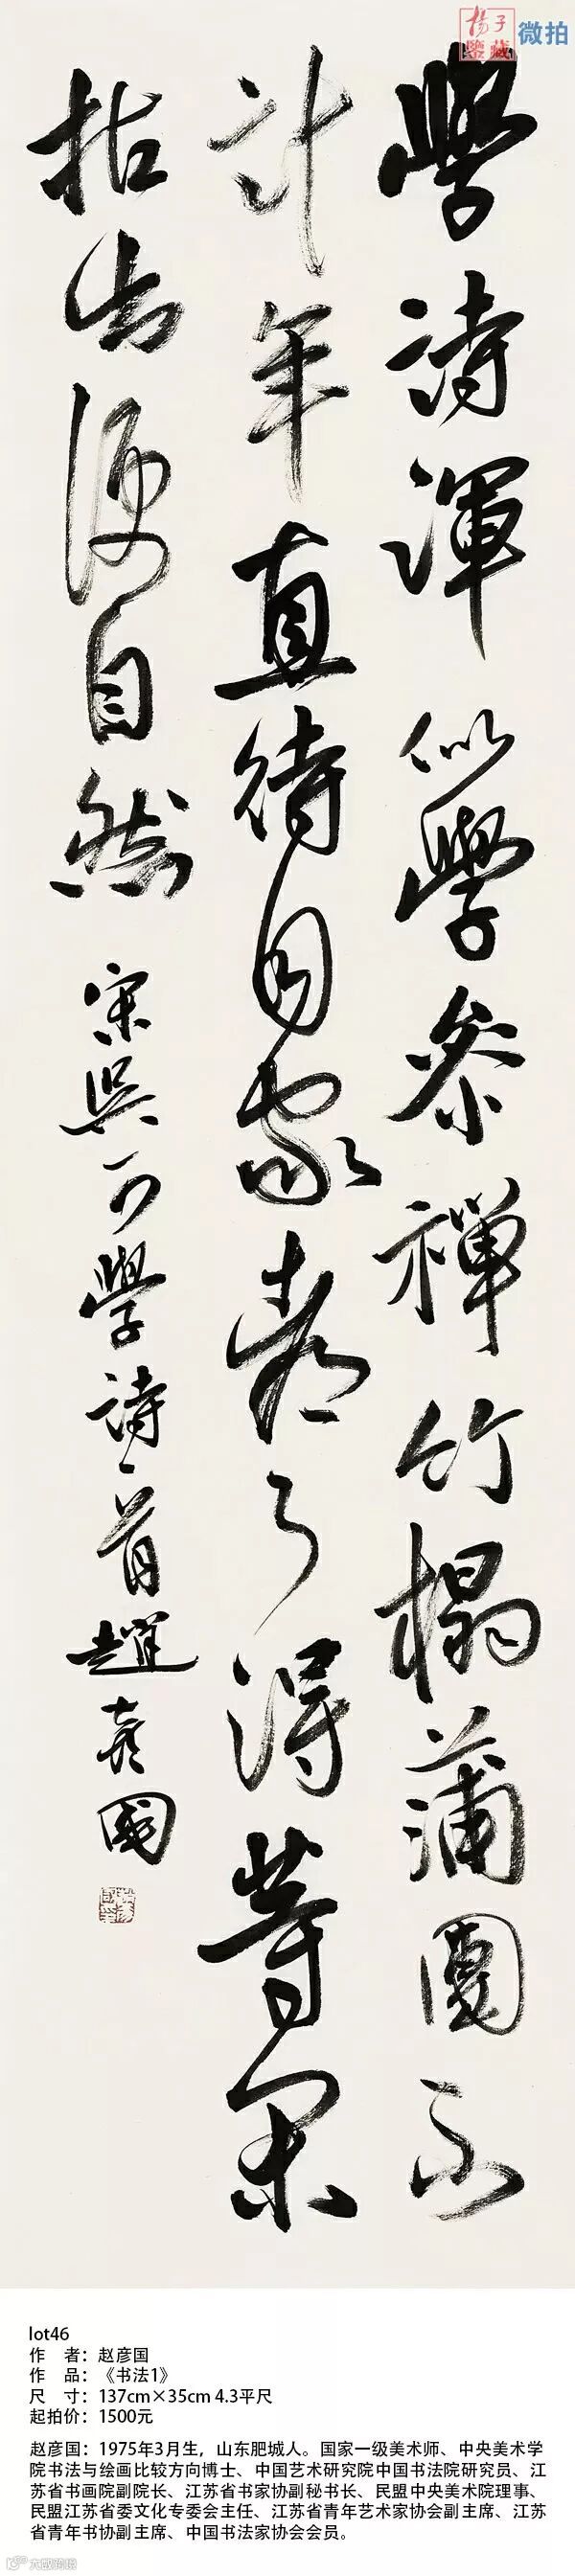 揚子
鑒藏
微拍
學詩渾似學参禪竹榻蒲團不
計年直待自家都了得等閑
拈出便自然
宋吳可學詩一首趙彥國
lot46
作 者：赵彦国
作 品：《书法1》
尺 寸：137cm×35cm 4.3平尺
起拍价：1500元
赵彦国：1975年3月生，山东肥城人。国家一级美术师、中央美术学
院书法与绘画比较方向博士、中国艺术研究院中国书法院研究员、江
苏省书画院副院长、江苏省书家协副秘书长、民盟中央美术院理事、
民盟江苏省委文化专委会主任、江苏省青年艺术家协会副主席、江苏
省青年书协副主席、中国书法家协会会员。